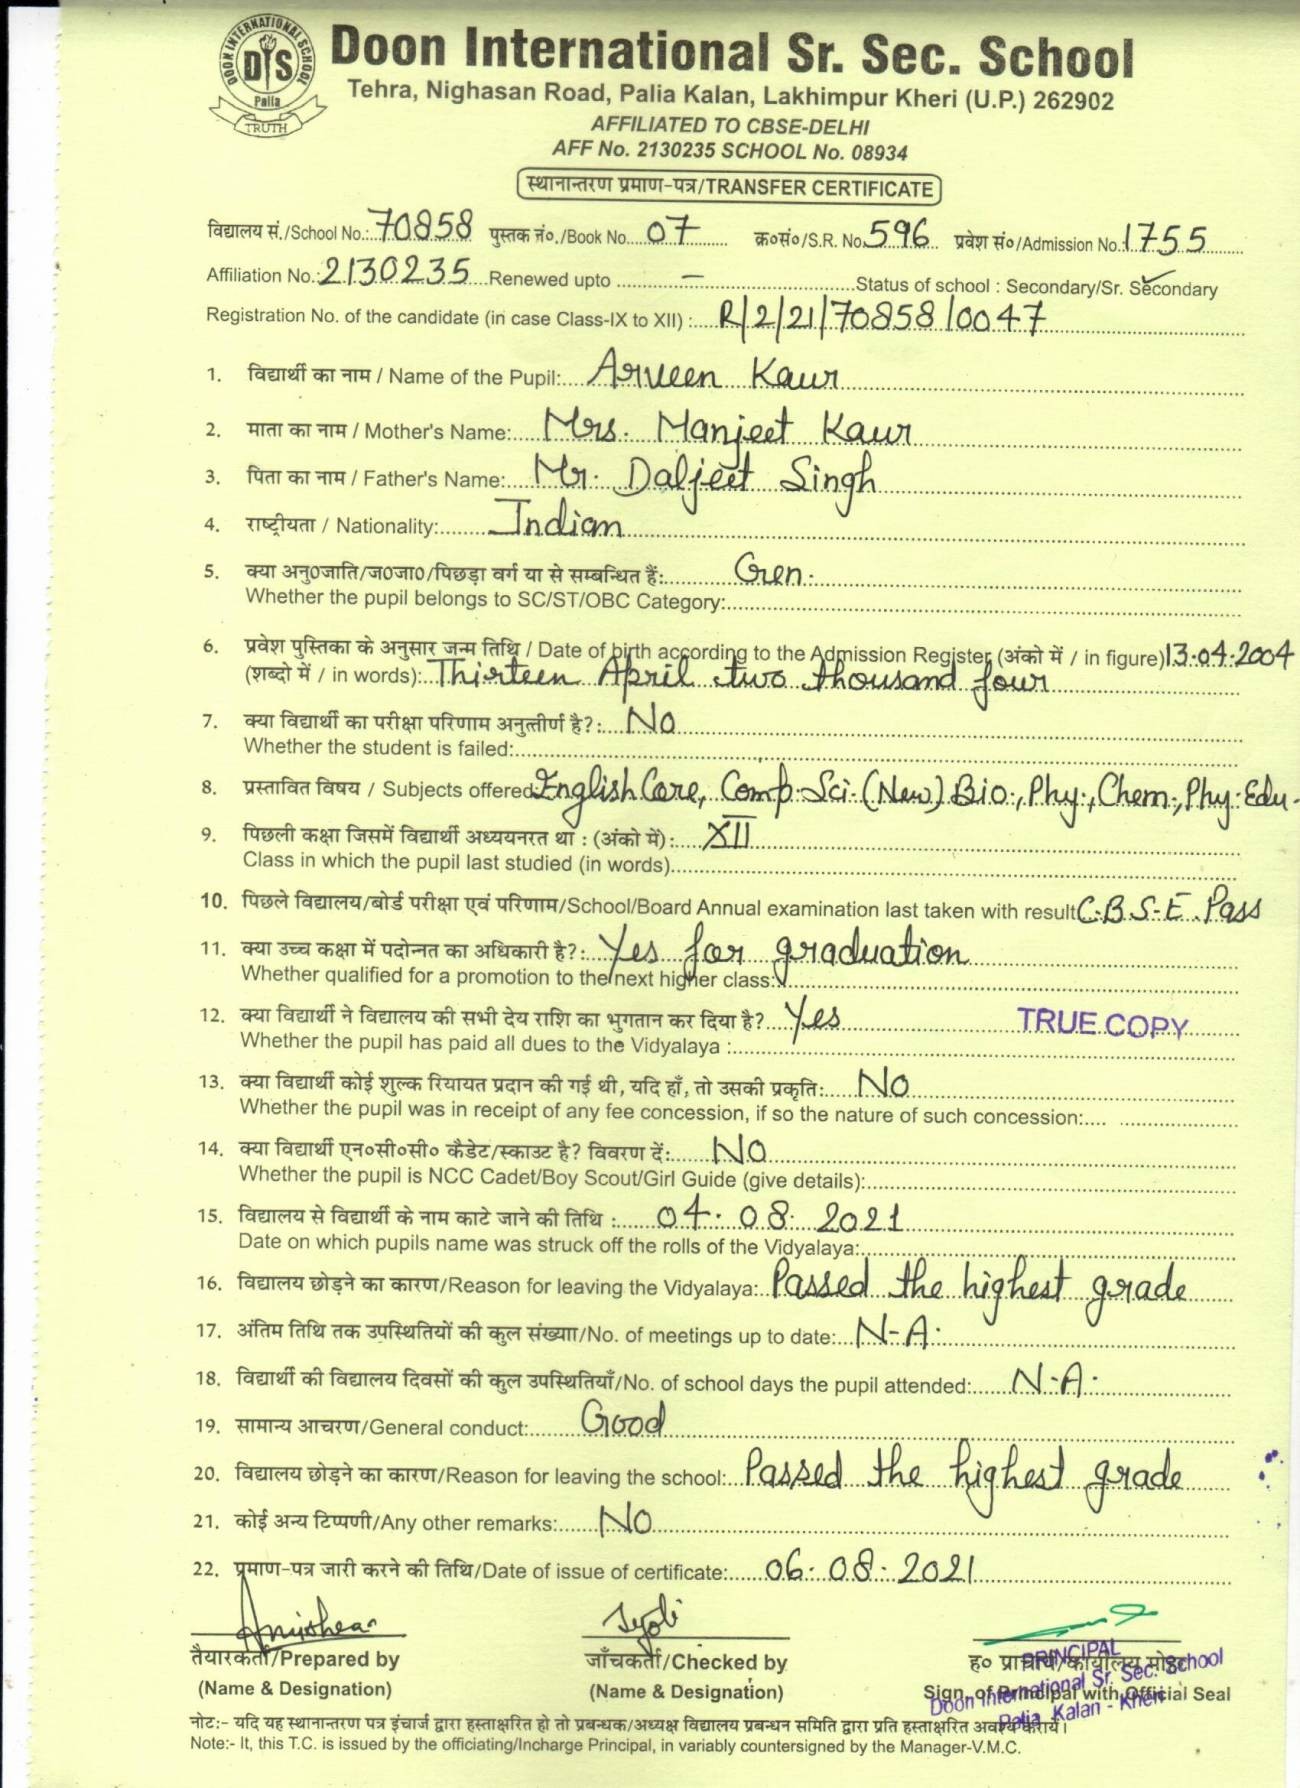 DOON INTERNATIONAL SCHOOL
DIS
Palia
TRUTH
Doon International Sr. Sec. School
Tehra, Nighasan Road, Palia Kalan, Lakhimpur Kheri (U.P.) 262902
AFFILIATED TO CBSE-DELHI
AFF No. 2130235 SCHOOL No. 08934
स्थानान्तरण प्रमाण-पत्र/TRANSFER CERTIFICATE
विद्यालय सं./School No.: 70858 पुस्तक नं०./Book No. 07 क्र०सं०/S.R. No. 596 प्रवेश सं०/Admission No. 1755
Affiliation No.: 2130235 Renewed upto – Status of school : Secondary/Sr. Secondary
Registration No. of the candidate (in case Class-IX to XII) : R/2/21/70858/0047
1. विद्यार्थी का नाम / Name of the Pupil: Arveen Kaur
2. माता का नाम / Mother's Name: Mrs. Manjeet Kaur
3. पिता का नाम / Father's Name: Mr. Daljeet Singh
4. राष्ट्रीयता / Nationality: Indian
5. क्या अनु0जाति/ज0जा0/पिछड़ा वर्ग या से सम्बन्धित हैं: Gen.
Whether the pupil belongs to SC/ST/OBC Category:
6. प्रवेश पुस्तिका के अनुसार जन्म तिथि / Date of birth according to the Admission Register (अंको में / in figure) 13.04.2004
(शब्दो में / in words): Thirteen April two thousand four
7. क्या विद्यार्थी का परीक्षा परिणाम अनुत्तीर्ण है?: No
Whether the student is failed:
8. प्रस्तावित विषय / Subjects offered English Core, Comp. Sci. (New) Bio., Phy., Chem., Phy. Edu.
9. पिछली कक्षा जिसमें विद्यार्थी अध्ययनरत था : (अंको में): XII
Class in which the pupil last studied (in words)
10. पिछले विद्यालय/बोर्ड परीक्षा एवं परिणाम/School/Board Annual examination last taken with result C.B.S.E. Pass
11. क्या उच्च कक्षा में पदोन्नत का अधिकारी है?: Yes for graduation
Whether qualified for a promotion to the next higher class:
12. क्या विद्यार्थी ने विद्यालय की सभी देय राशि का भुगतान कर दिया है? Yes TRUE COPY
Whether the pupil has paid all dues to the Vidyalaya :
13. क्या विद्यार्थी कोई शुल्क रियायत प्रदान की गई थी, यदि हाँ, तो उसकी प्रकृति: No
Whether the pupil was in receipt of any fee concession, if so the nature of such concession:
14. क्या विद्यार्थी एन०सी०सी० कैडेट/स्काउट है? विवरण दें: No
Whether the pupil is NCC Cadet/Boy Scout/Girl Guide (give details):
15. विद्यालय से विद्यार्थी के नाम काटे जाने की तिथि : 04.08.2021
Date on which pupils name was struck off the rolls of the Vidyalaya:
16. विद्यालय छोड़ने का कारण/Reason for leaving the Vidyalaya: Passed the highest grade
17. अंतिम तिथि तक उपस्थितियों की कुल संख्या/No. of meetings up to date: N-A.
18. विद्यार्थी की विद्यालय दिवसों की कुल उपस्थितियाँ/No. of school days the pupil attended: N.A.
19. सामान्य आचरण/General conduct: Good
20. विद्यालय छोड़ने का कारण/Reason for leaving the school: Passed the highest grade
21. कोई अन्य टिप्पणी/Any other remarks: No
22. प्रमाण-पत्र जारी करने की तिथि/Date of issue of certificate: 06.08.2021
Jyoti
तैयारकर्ता/Prepared by जाँचकर्ता/Checked by ह० प्राचार्य/कार्यालय मोहर
(Name & Designation) (Name & Designation) Sign. of Principal with Official Seal
PRINCIPAL
Doon International Sr. Sec. School
Palia Kalan - Kheri
नोट:- यदि यह स्थानान्तरण पत्र इंचार्ज द्वारा हस्ताक्षरित हो तो प्रबन्धक/अध्यक्ष विद्यालय प्रबन्धन समिति द्वारा प्रति हस्ताक्षरित अवश्य करायें।
Note:- It, this T.C. is issued by the officiating/Incharge Principal, in variably countersigned by the Manager-V.M.C.